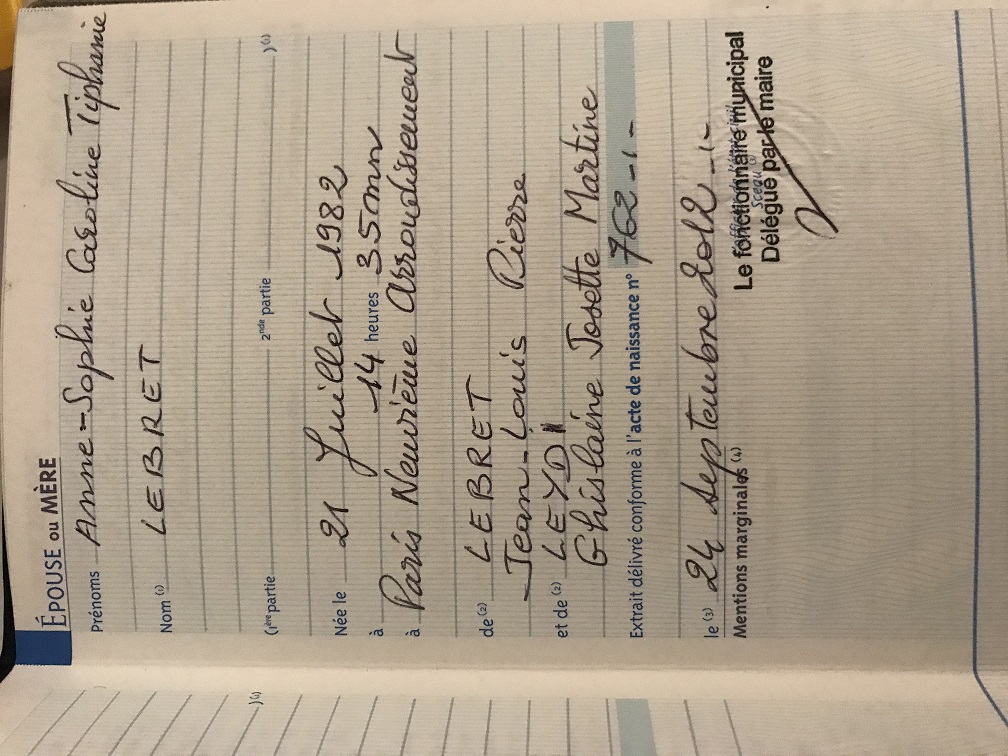 ÉPOUSE ou MÈRE
Prénoms Anne-Sophie Caroline Tiphanie
Nom (1) LEBRET
(1ère partie 2nde partie )(1)
Née le 21 Juillet 1982
à 14 heures 35mn
à Paris Neuvième Arrondissement
de (2) LEBRET
Jean-Louis Pierre
et de (2) LEYDI
Ghislaine Josette Martine
Extrait délivré conforme à l'acte de naissance n° 762 -1-
le (3) 24 Septembre 2012 -1-
Mentions marginales (4)
Le fonctionnaire municipal
Sceau
Délégué par le maire
)(1)